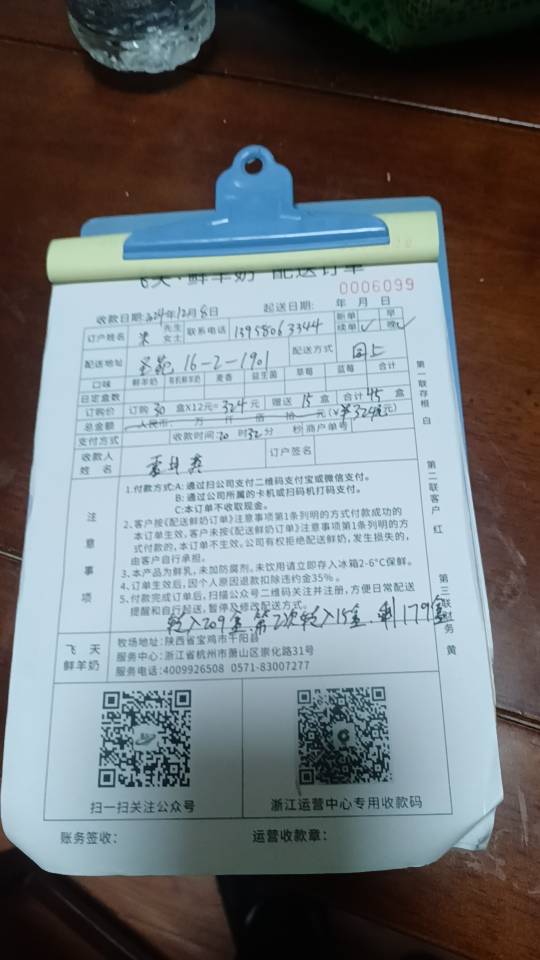 飞天·鲜羊奶 配送订单
0006099
收款日期:2024年12月8日 起送日期: 年 月 日
订户姓名 先生 女士 联系电话 13958063344 新单 续单✓ 早 晚✓
配送地址 16-2-1901 配送方式 同上
口味 鲜羊奶 有机鲜羊奶 麦香 益生菌 草莓 蓝莓 合计
日定盒数
订购价 订购 30 盒X12元= 324 元 赠送 15 盒 合计 45 盒
总金额 人民币: 万 仟 佰 拾 元(¥ 324元)
支付方式 收款时间:20 时32分 秒 商户单号
收款人姓名 订户签名
注意事项
1.付款方式:A: 通过扫公司支付二维码支付宝或微信支付。
B: 通过公司所属的卡机或扫码机打码支付。
C:本订单不收取现金。
2、客户按《配送鲜奶订单》注意事项第1条列明的方式付款成功的
本订单生效,客户未按《配送鲜奶订单》注意事项第1条列明的方
式付款的,本订单不生效,公司有权拒绝配送鲜奶,发生损失的,
由客户自行承担。
3、本产品为鲜乳、未加防腐剂。未饮用请立即存入冰箱2-6°C保鲜。
4、订单生效后,因个人原因退款扣除违约金35%。
5、付款完成订单后,扫描公众号二维码关注并注册,方便日常配送
提醒和自行起送,暂停及修改配送方式。
转入209盒.第2次转入15盒.剩179盒
飞天鲜羊奶
牧场地址:陕西省宝鸡市千阳县
服务中心:浙江省杭州市萧山区崇化路31号
服务电话:4009926508 0571-83007277
扫一扫关注公众号
浙江运营中心专用收款码
账务签收:
运营收款章:
第一联存根 白
第二联客户 红
第三联财务 黄